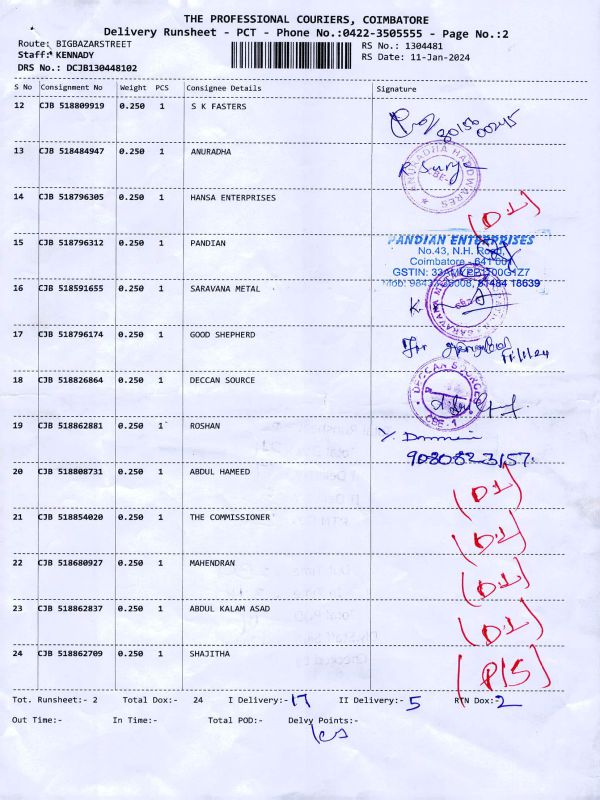 THE PROFESSIONAL COURIERS, COIMBATORE
Delivery Runsheet - PCT - Phone No.:0422-3505555 - Page No.:2
Route: BIGBAZARSTREET RS No.: 1304481
Staff: KENNADY RS Date: 11-Jan-2024
DRS No.: DCJB130448102
S No Consignment No Weight PCS Consignee Details Signature
12 CJB 518809919 0.250 1 S K FASTERS
13 CJB 518484947 0.250 1 ANURADHA
ANURADHA HARDWARES
R. Surya
14 CJB 518796305 0.250 1 HANSA ENTERPRISES (D1)
15 CJB 518796312 0.250 1 PANDIAN
PANDIAN ENTERPRISES
No.43, N.H. Road,
Coimbatore - 641 001
16 CJB 518591655 0.250 1 SARAVANA METAL
17 CJB 518796174 0.250 1 GOOD SHEPHERD
For 11/1/24
18 CJB 518826864 0.250 1 DECCAN SOURCE
DECCAN SOURCES
CBE-1
19 CJB 518862881 1 ROSHAN
0.250
9080823157.
20 CJB 518808731 0.250 1 ABDUL HAMEED (D1)
21 CJB 518854020 0.250 1 THE COMMISSIONER (D1)
22 CJB 518680927 0.250 1 MAHENDRAN (D1)
23 CJB 518862837 0.250 1 ABDUL KALAM ASAD (D1)
24 CJB 518862709 0.250 1 SHAJITHA (P/S)
Tot. Runsheet:- 2 Total Dox:- 24 I Delivery:- 17 II Delivery:- 5 RTN Dox:- 2
Out Time:- In Time:- Total POD:- Delvy Points:-